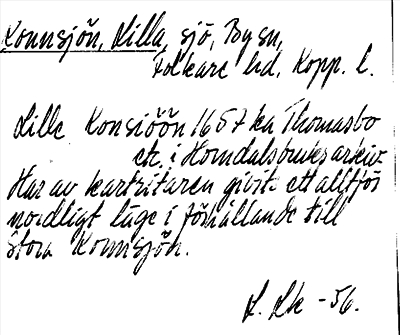 Konnsjön, Lilla, sjö, By sn,
Folkare hd, Kopp. l.
Lille Konsiöön 1657 ka Thomasbo
etc. i Horndalsbruks arkiv.
Har av kartritaren givits ett alltför
nordligt läge i förhållande till
Stora Konnsjön.
L. Lk -56.